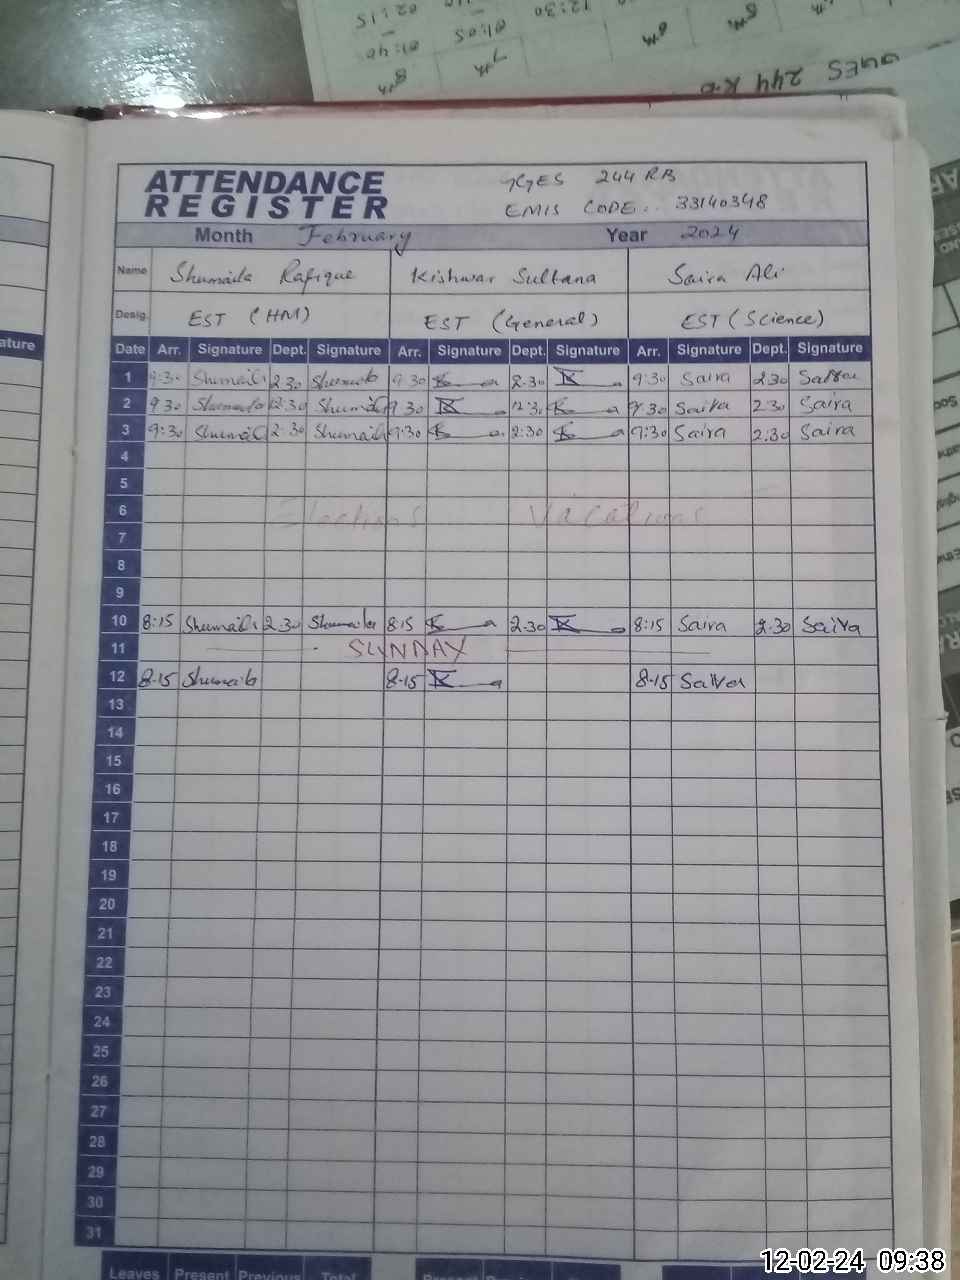 02:15 01:05 12:30
01:40
8th 7th 6th 5th
GGES 244 R.B
ATTENDANCE
REGISTER
GGES 244 RB
EMIS CODE.. 33140348
Month February Year 2024
Name Shumaila Rafique Kishwar Sultana Saira Ali
Desig. EST (HM) EST (General) EST (Science)
Date Arr. Signature Dept. Signature Arr. Signature Dept. Signature Arr. Signature Dept. Signature
ature
1 9:30 Shumaila 2 30 Shumaila 9 30 2.30 9:30 Saira 2 30 Saira
2 9 30 Shumaila 12:30 Shumaila 9 30 12:30 9 30 Saira 2 30 Saira
3 9:30 Shumaila 2:30 Shumaila 9:30 2:30 9:30 Saira 2:30 Saira
4
5
6 Elections Vacations
7
8
9
10 8:15 Shumaila 2.30 Shumaila 8:15 2.30 8:15 Saira 2.30 Saira
11 SUNDAY
12 8-15 Shumaila 8-15 8-15 Saira
13
14
15
16
17
18
19
20
21
22
23
24
25
26
27
28
29
30
31
Leaves Present Previous Total Present
12-02-24 09:38